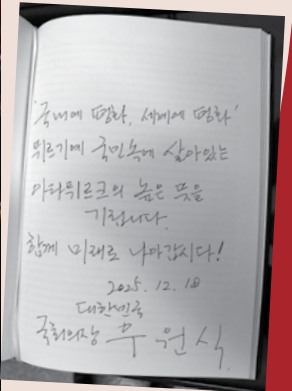 '국내에 평화, 세계에 평화'
튀르키예 국민속에 살아있는
아타튀르크의 높은 뜻을
기립니다.
함께 미래로 나아갑시다!
2025. 12. 18
대한민국
국회의장 우원식